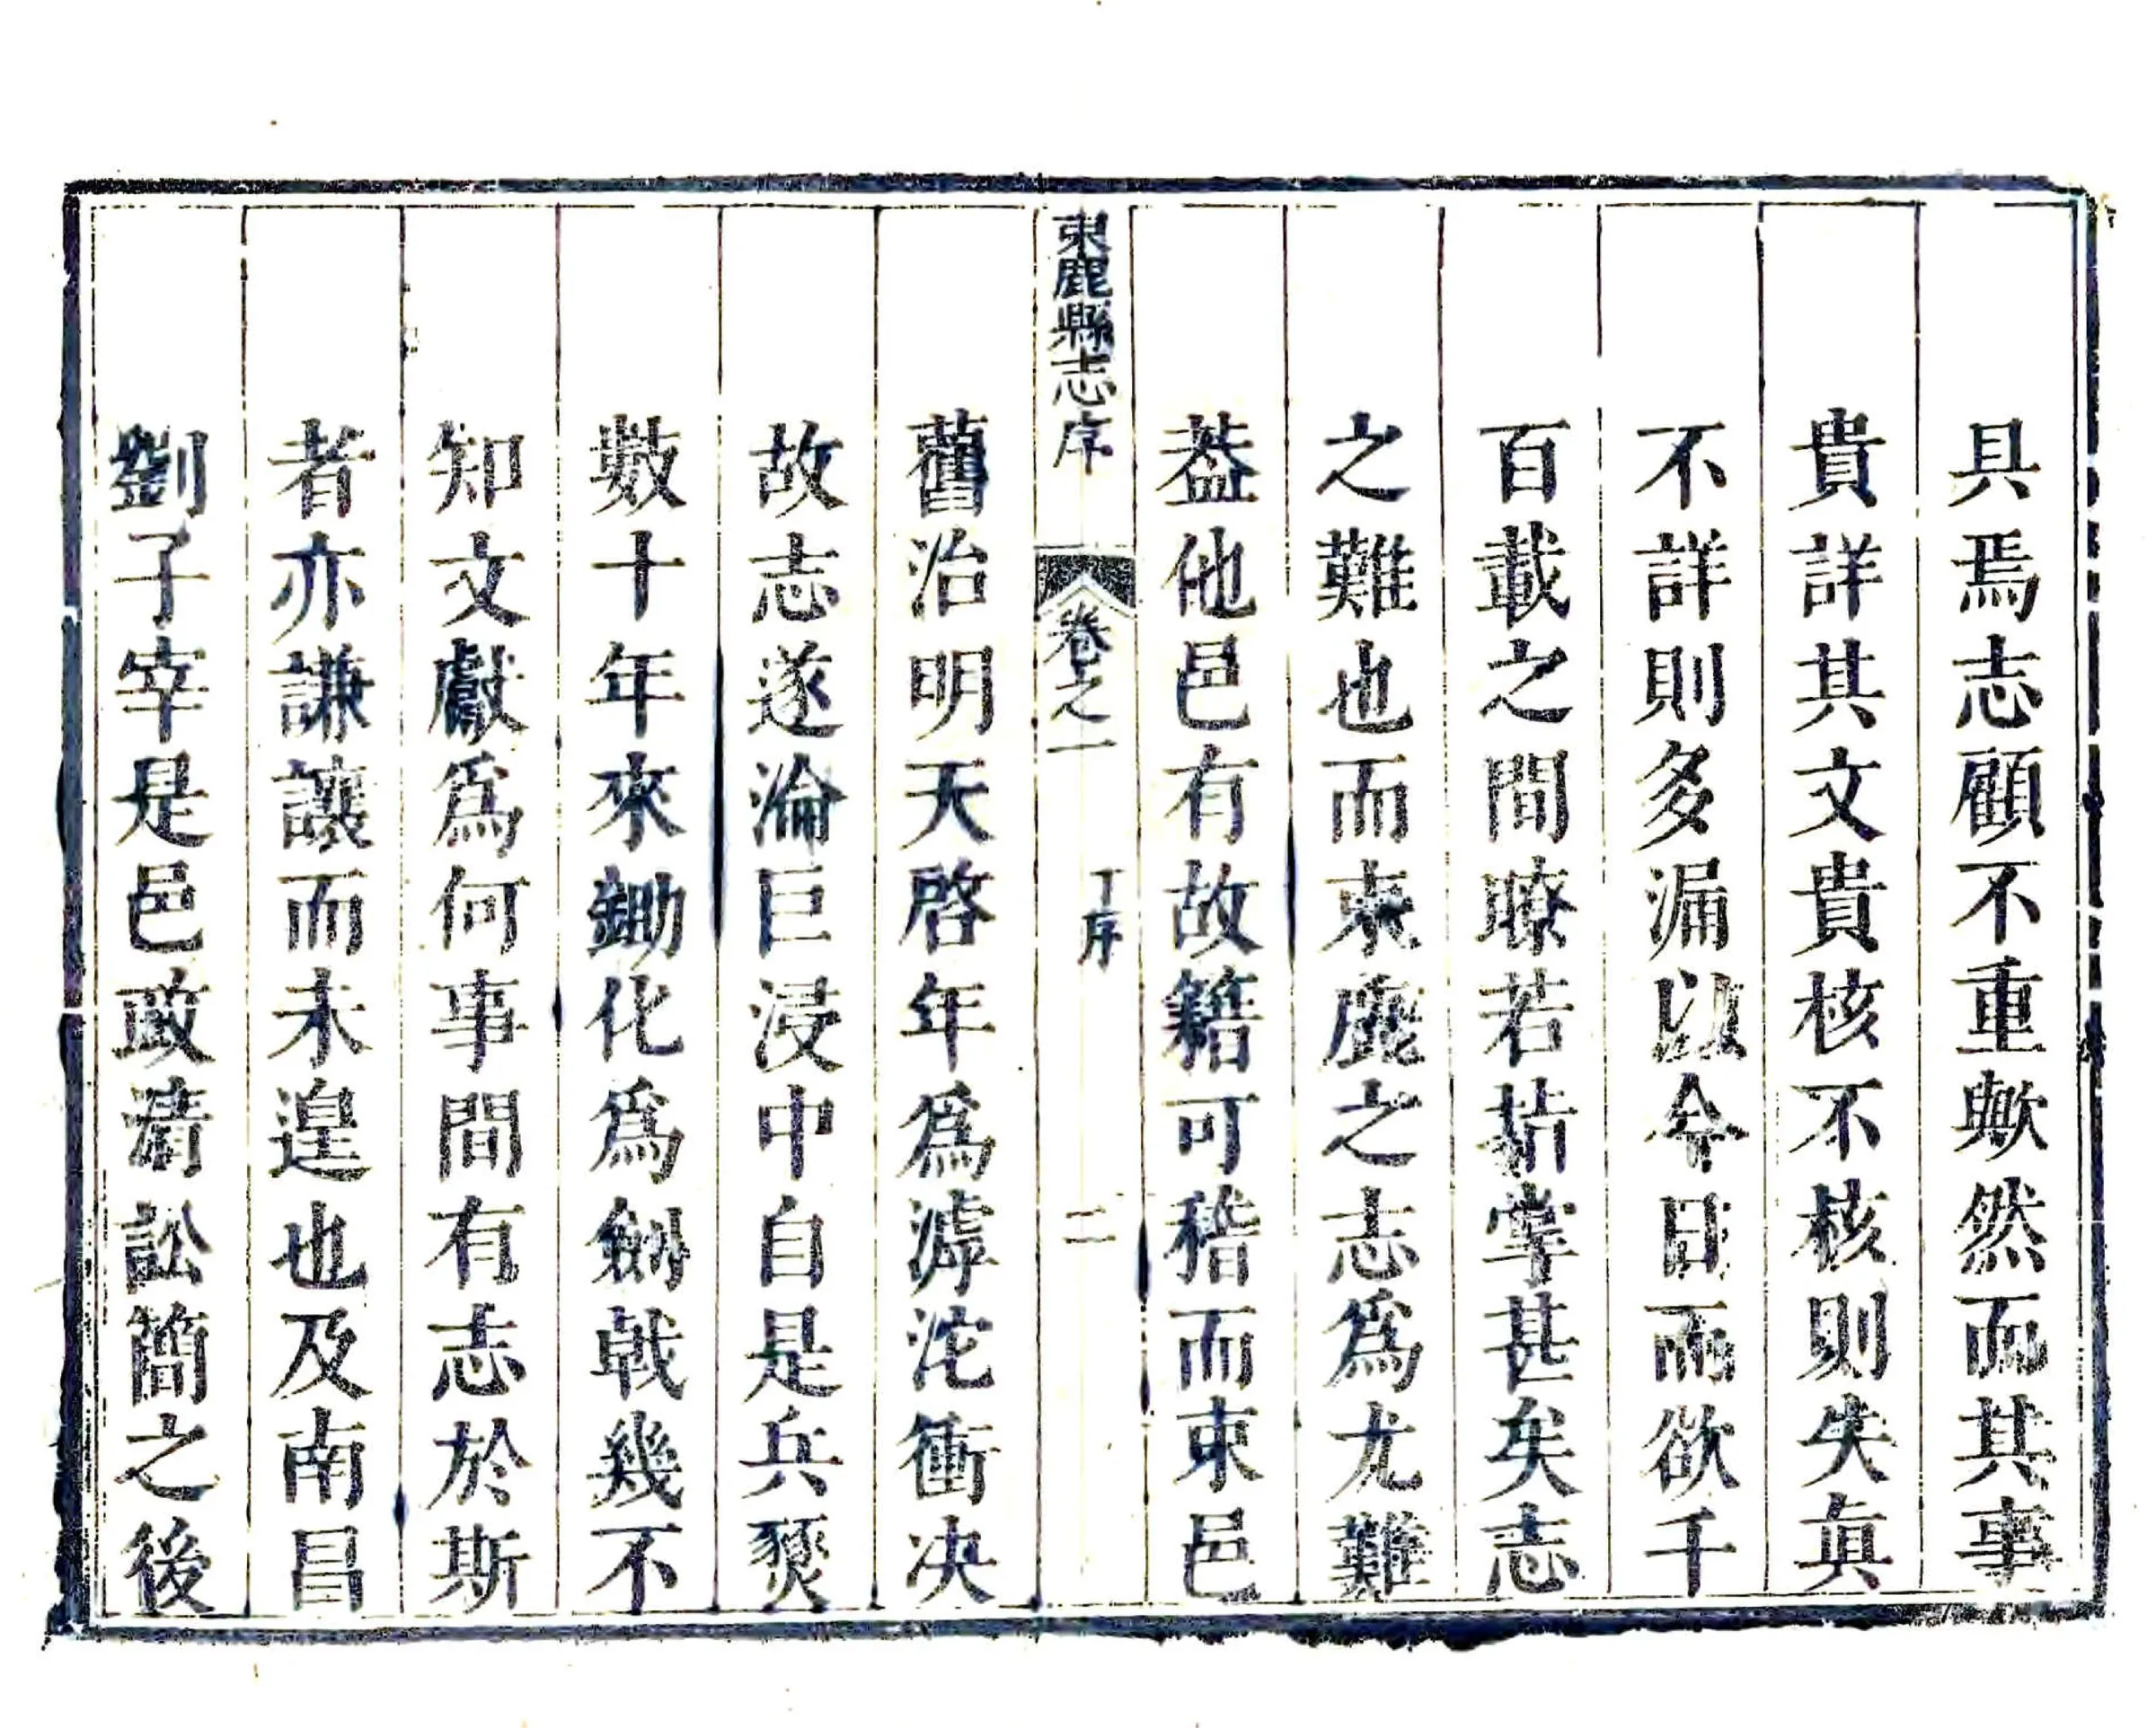 具焉志顧不重歟然而其事
貴詳其文貴核不核則失眞
不詳則多漏以今日而欲千
百載之間瞭若指掌甚矣志
之難也而束鹿之志爲尤難
葢他邑有故籍可稽而束邑
束鹿縣志序 卷之一 丁序 二
舊治明天啓年爲滹沱衝决
故志遂淪巨浸中自是兵燹
數十年來鋤化爲劒戟幾不
知文獻爲何事間有志於斯
者亦謙讓而未遑也及南昌
劉子宰是邑政淸訟簡之後